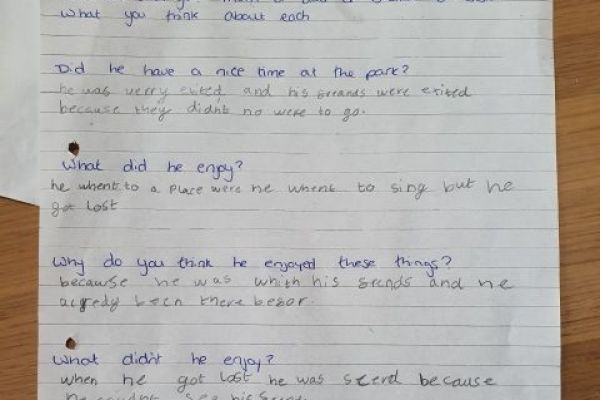 what you think about each
Did he have a nice time at the park?
he was verry exited and his freands were exited
because they didnt no were to go.
What did he enjoy?
he whent to a place were he whent to sing but he
got lost
Why do you think he enjoyed these things?
because he was whith his freands and he
alredy been there befor.
What didn't he enjoy?
when he got lost he was scerd because
he see his